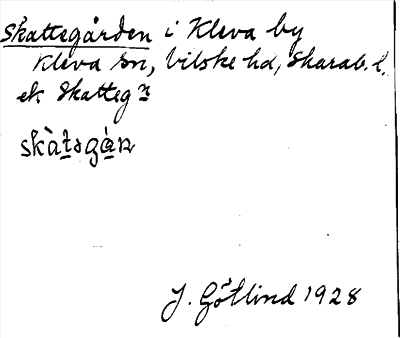 Skattegården i Kleva by
Kleva sn, Vilske hd, Skarab. l.
ek Skattegn
skàtsgán
J. Götlind 1928